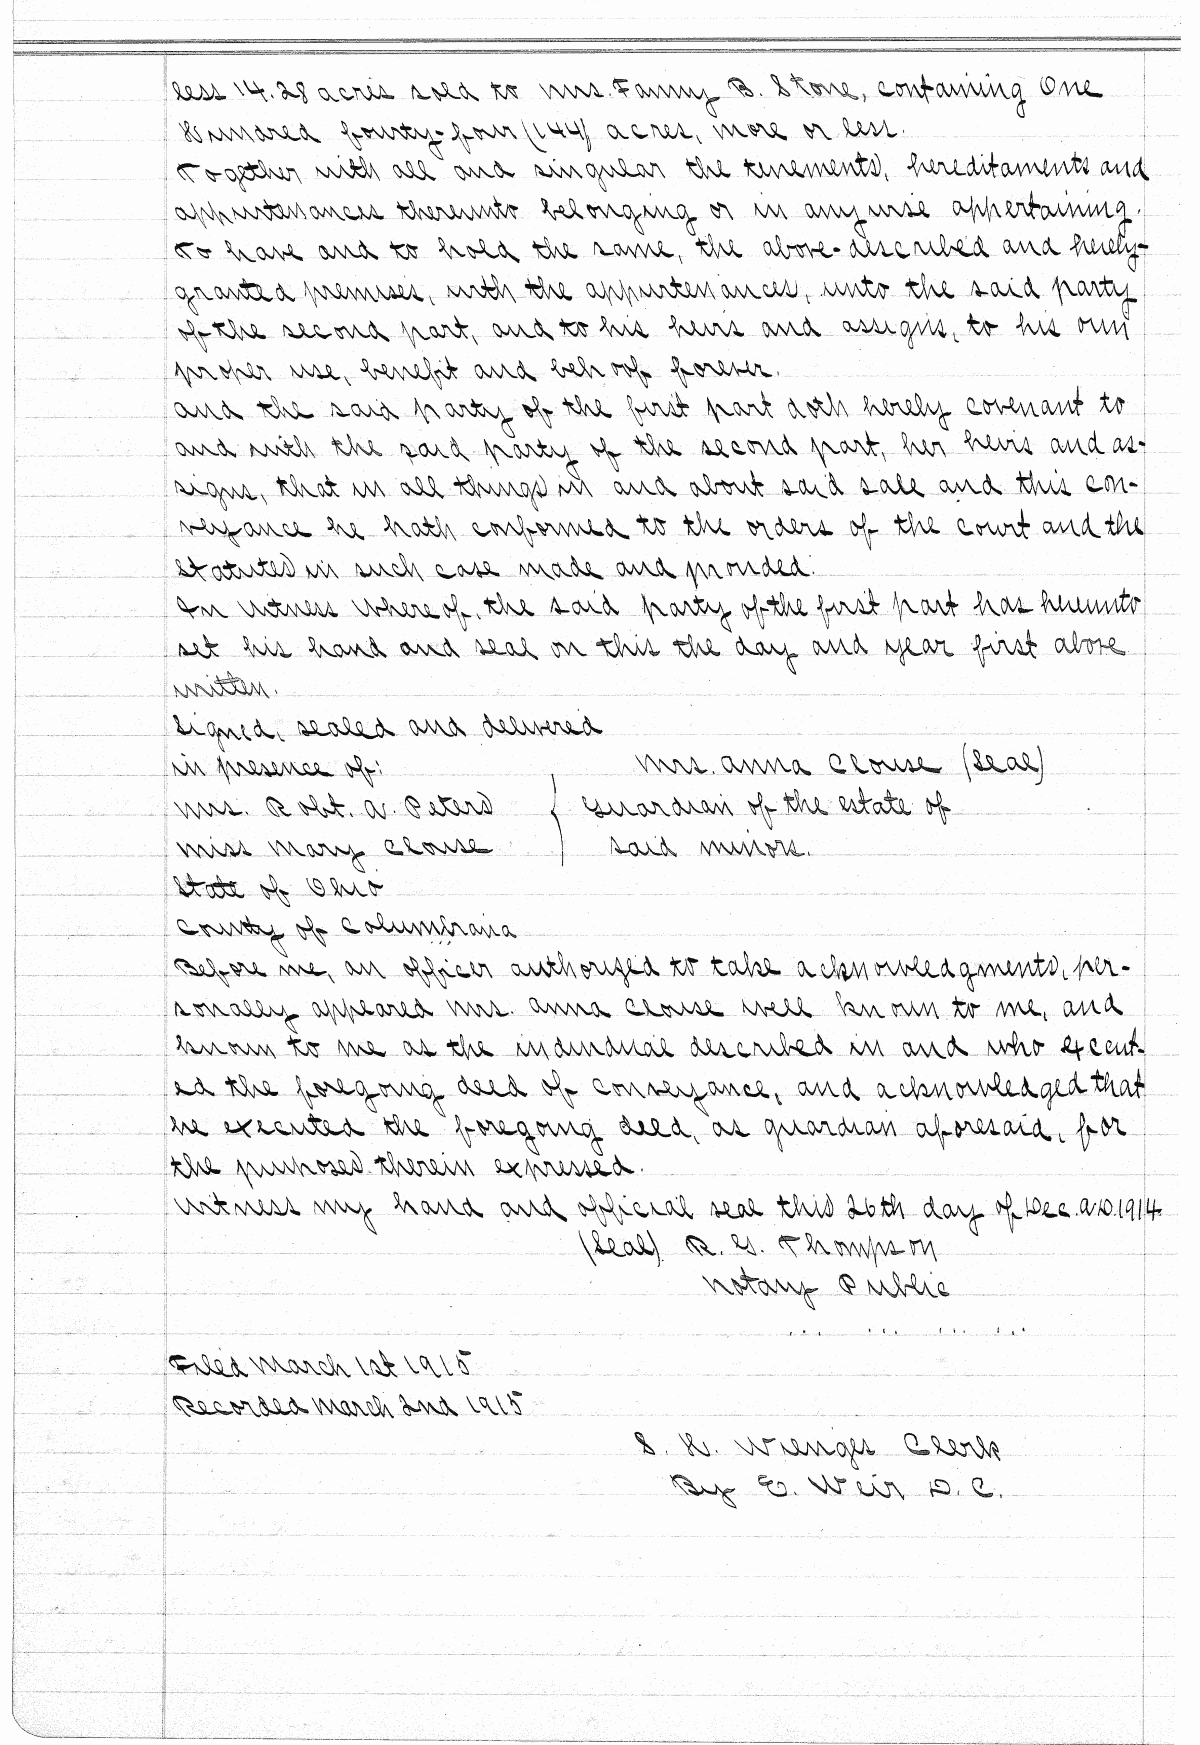 less 14.28 acres sold to Mrs. Fanny B. Stone, containing One
Hundred fourty-four (144) acres, more or less.
Together with all and singular the tenements, hereditaments and
appurtenances thereunto belonging or in anywise appertaining.
To have and to hold the same, the above-described and hereby-
granted premises, with the appurtenances, unto the said party
of the second part, and to his heirs and assigns, to his own
proper use, benefit and behoof forever.
And the said party of the first part doth hereby covenant to
and with the said party of the second part, her heirs and as-
signs, that in all things in and about said sale and this con-
veyance he hath conformed to the orders of the court and the
Statutes in such case made and provided.
In Witness Whereof, the said party of the first part has hereunto
set his hand and seal on this the day and year first above
written.
Signed, sealed and delivered
in presence of: Mrs. Anna Clouse (Seal)
Mrs. Robt. A. Peters Guardian of the estate of
Miss Mary Clouse said minors.
State of Ohio
County of Columbiana
Before me, an officer authorized to take acknowledgments, per-
sonally appeared Mrs. Anna Clouse well known to me, and
known to me as the individual described in and who execut-
ed the foregoing deed of conveyance, and acknowledged that
he executed the foregoing deed, as guardian aforesaid, for
the purposes therein expressed.
Witness my hand and official seal this 26th day of Dec. A.D. 1914
(Seal) R. G. Thompson
Notary Public
Filed March 1st 1915
Recorded March 2nd 1915
S. H. Wienges Clerk
By E. Weir D. C.